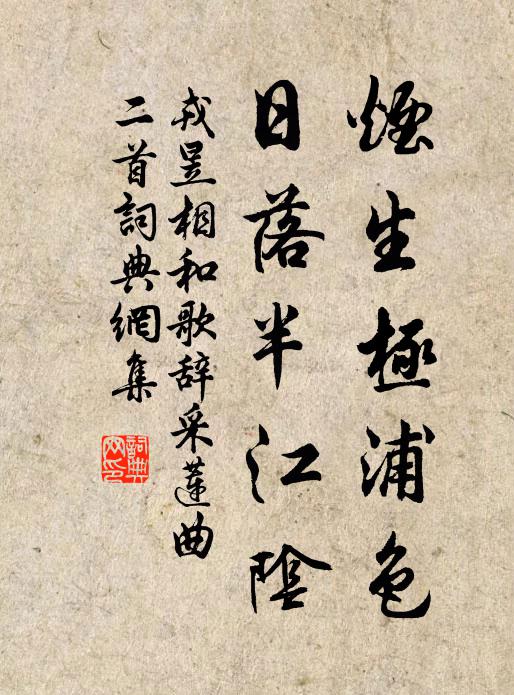 煙生極浦色
日落半江陰
戎昱相和歌辞采蓮曲
二首詞典網集
詞典網印